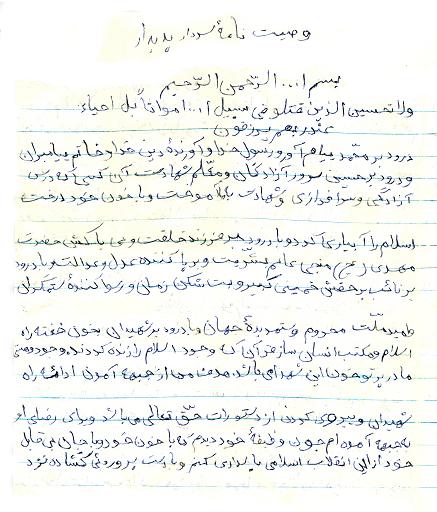 وصیت نامهٔ سردار پدیدار
بسم ا... الرّحمن الرّحیم
ولا تحسبن الذین قتلو فی سبیل ا... امواتاً بل احیاء
عند ربهم یرزقون
درود بر محمّد پیام آور و رسول خدا و آورندهٔ دین خدا و خاتم پیامبران
و درود بر حسین سرور آزادگان و معلّم شهادت آن کسی که درس
آزادگی و سرافرازی و شهادت بما آموخت و با خون خود درخت
اسلام را آبیاری کرد و با درود بر فرزند خلف و می با کفش حضرت
مهدی (عج) منجی عالم بشریت و برپا کننده عدل و عدالت و با درود
بر نائب بر حقش خمینی کبیر و بت شکن زمان و رسوا کنندهٔ ستمگران
ملّت محروم و ستمدیدهٔ جهان و با درود بر شهیدان بخون خفته راه
اسلام و مکتب انسانی ساز قرآن که وجود اسلام را زنده کردند و وجود
ما در پرتو خون این شهدا می باشد هدف من از جبهه آمدن ادامه راه
شهیدان و پیروی کردن از دستورات حقّ تعالی می باشد و برای رضای او
به جبهه آمده ام چون وظیفهٔ خود دیدم که با خون خود و با جان بی قابل
خود از این انقلاب اسلامی پاسداری کنم و تا پیروزی